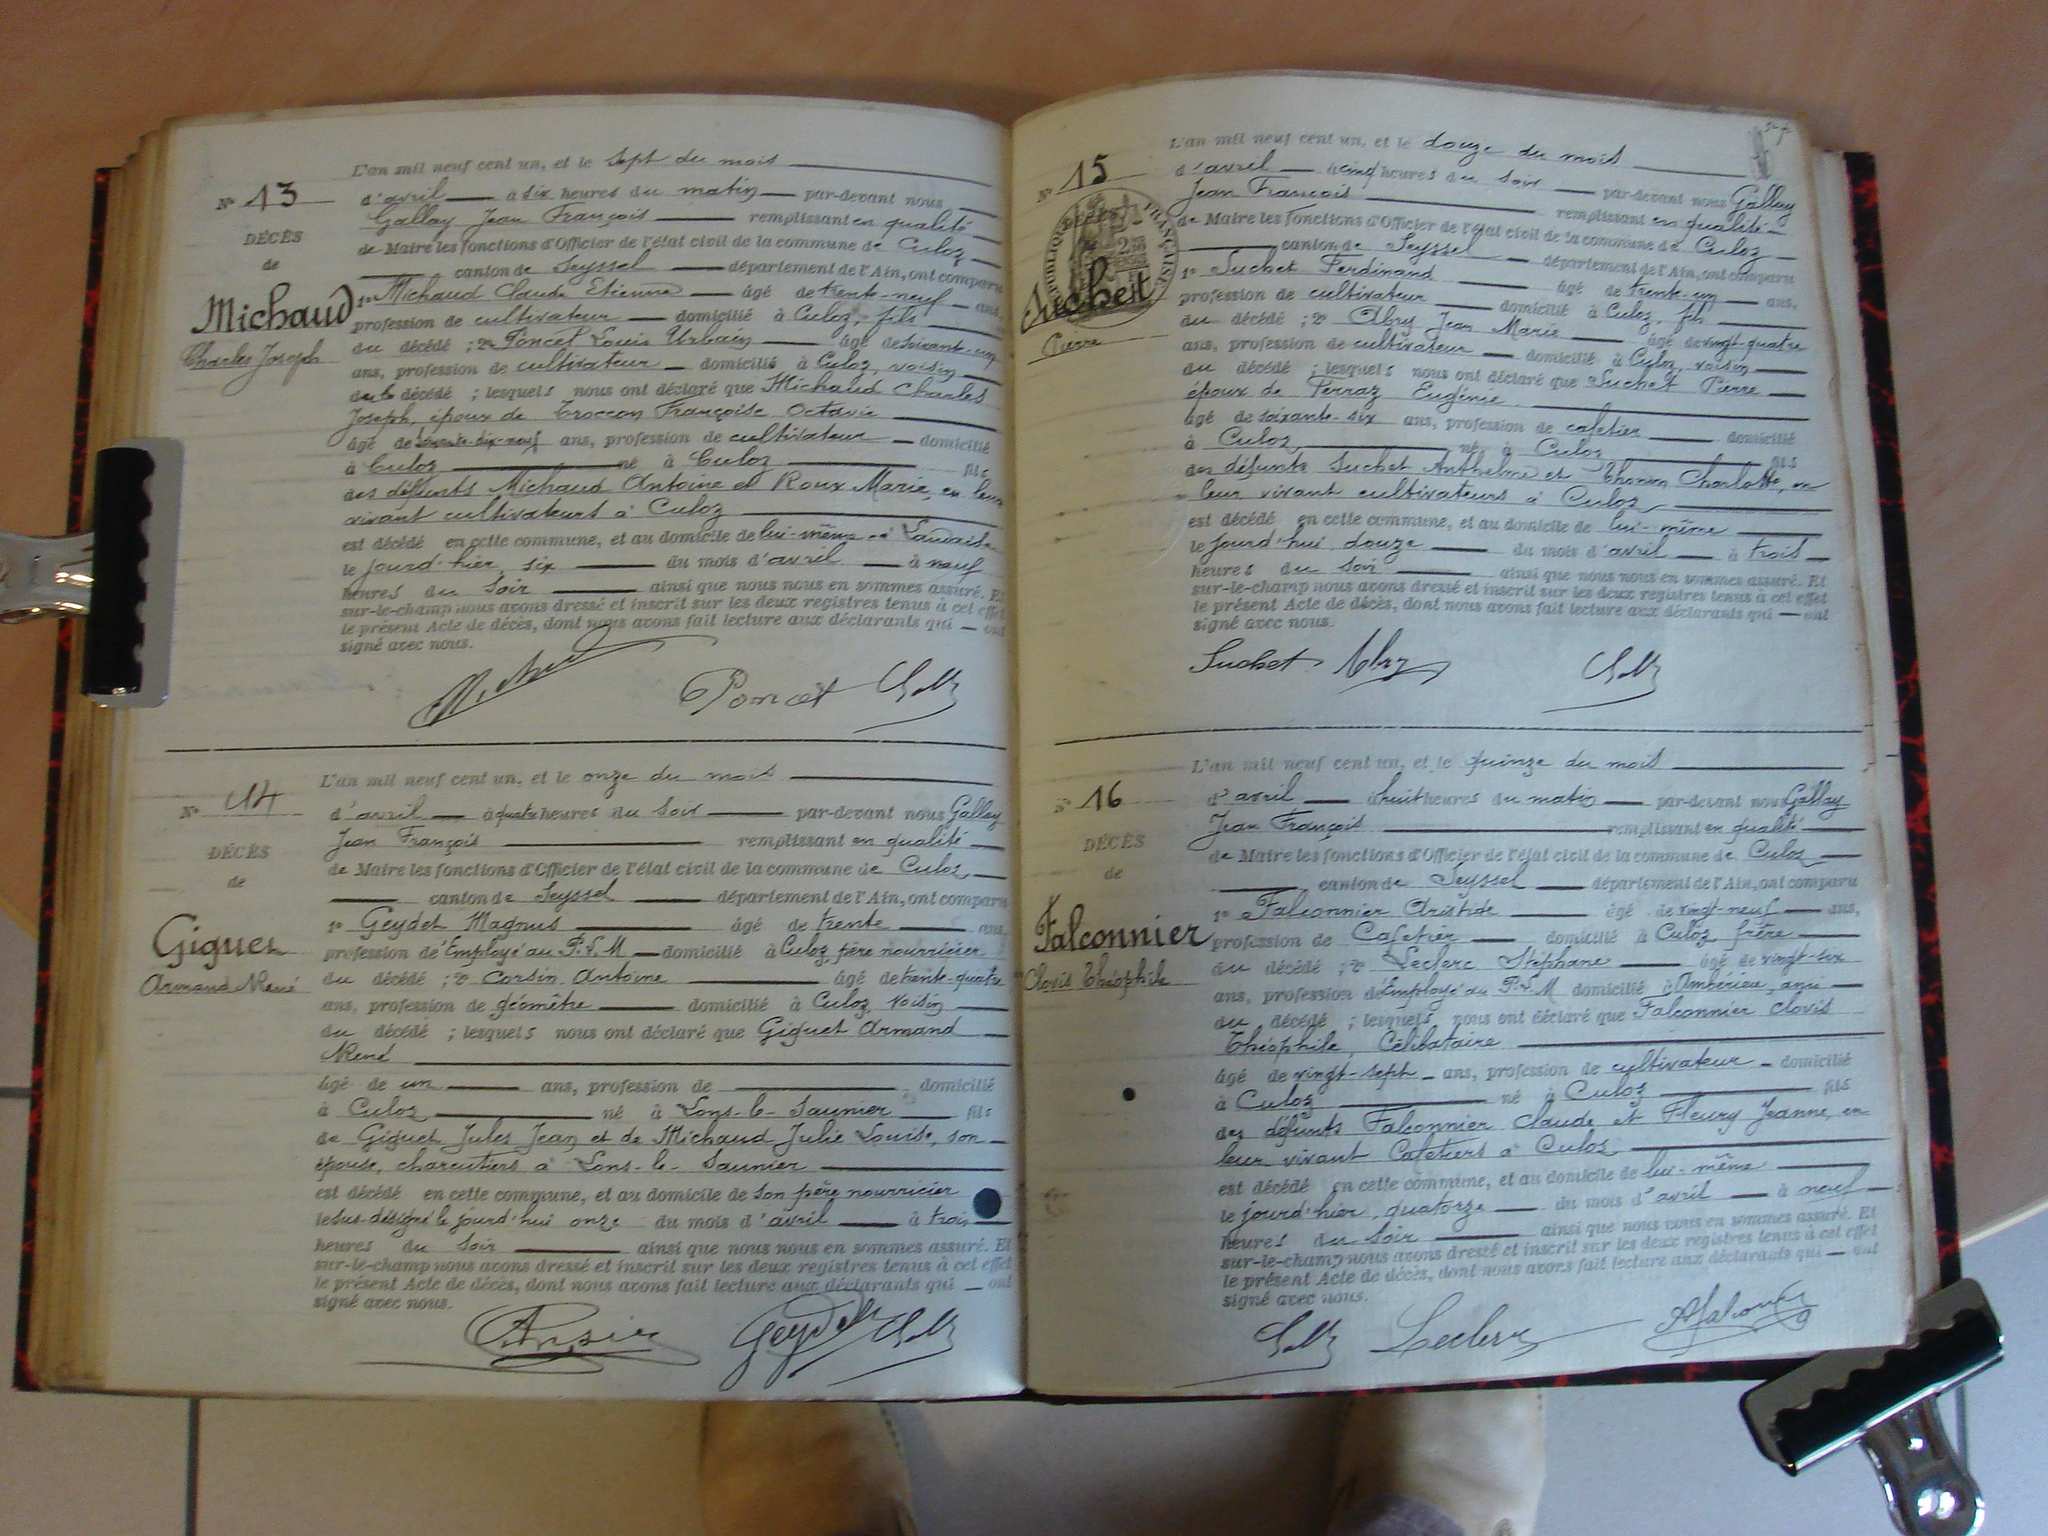 L'an mil neuf cent un, et le sept du mois
Nº 13
d'avril à six heures du matin par-devant nous
Gallay Jean François remplissant en qualité
DÉCÈS
de Maire les fonctions d'Officier de l'état civil de la commune de Culoz,
de
canton de Seyssel département de l'Ain, ont comparu
Michaud
1º Michaud Claude Etienne âgé de trente-neuf ans,
profession de cultivateur domicilié à Culoz, fils
Charles Joseph
du décédé ; 2º Poncet Louis Urbain âgé de soixante-un
ans, profession de cultivateur domicilié à Culoz, voisin
du décédé ; lesquels nous ont déclaré que Michaud Charles
Joseph, époux de Troccon Françoise Octavie
âgé de ans, profession de cultivateur domicilié
à Culoz né à Culoz fils
des défunts Michaud Antoine et Roux Marie, en leur
vivant cultivateurs à Culoz
est décédé en cette commune, et au domicile de lui-même à
le jourd'hier, six du mois d'avril à neuf
heures du soir ainsi que nous nous en sommes assuré. Et
sur-le-champ nous avons dressé et inscrit sur les deux registres tenus à cet effet
le présent Acte de décès, dont nous avons fait lecture aux déclarants qui ont
signé avec nous.
Poncet
L'an mil neuf cent un, et le onze du mois
Nº 14
d'avril à quatre heures du soir par-devant nous Gallay
Jean François remplissant en qualité
DÉCÈS
de Maire les fonctions d'Officier de l'état civil de la commune de Culoz,
de
canton de Seyssel département de l'Ain, ont comparu
Giguet
1º Geydet Magnus âgé de trente ans,
profession d'Employé au P.L.M domicilié à Culoz, père nourricier
Armand René
du décédé ; 2º Corsin Antoine âgé de trente-quatre
ans, profession de géomètre domicilié à Culoz, voisin
du décédé ; lesquels nous ont déclaré que Giguet Armand
René
âgé de un ans, profession de domicilié
à Culoz né à Lons-le-Saunier fils
de Giguet Jules Jean et de Michaud Julie Louise, son
épouse, charcutiers à Lons-le-Saunier
est décédé en cette commune, et au domicile de son père nourricier
le sus-désigné le jourd'hui onze du mois d'avril à trois
heures du soir ainsi que nous nous en sommes assuré. Et
sur-le-champ nous avons dressé et inscrit sur les deux registres tenus à cet effet
le présent Acte de décès, dont nous avons fait lecture aux déclarants qui ont
signé avec nous.
Geydet
L'an mil neuf cent un, et le douze du mois
Nº 15
d'avril à cinq heures du soir par-devant nous Gallay
Jean François remplissant en qualité
de Maire les fonctions d'Officier de l'état civil de la commune de Culoz
RÉPUBLIQUE FRANÇAISE
canton de Seyssel département de l'Ain, ont comparu
Suchet
1º Suchet Ferdinand âgé de trente-un ans,
profession de cultivateur domicilié à Culoz, fils
Pierre
du décédé ; 2º Abry Jean Marie âgé de vingt-quatre
ans, profession de cultivateur domicilié à Culoz, voisin
du décédé ; lesquels nous ont déclaré que Suchet Pierre
époux de Perraz Eugénie
âgé de soixante-six ans, profession de cafetier domicilié
à Culoz né à Culoz fils
des défunts Suchet Anthelme et Charlotte, en
leur vivant cultivateurs à Culoz
est décédé en cette commune, et au domicile de lui-même
le jourd'hui douze du mois d'avril à trois
heures du soir ainsi que nous nous en sommes assuré. Et
sur-le-champ nous avons dressé et inscrit sur les deux registres tenus à cet effet
le présent Acte de décès, dont nous avons fait lecture aux déclarants qui ont
signé avec nous.
Suchet Abry
L'an mil neuf cent un, et le quinze du mois
Nº 16
d'avril à huit heures du matin par-devant nous Gallay
Jean François remplissant en qualité
DÉCÈS
de Maire les fonctions d'Officier de l'état civil de la commune de Culoz
de
canton de Seyssel département de l'Ain, ont comparu
Falconnier
1º Falconnier Aristide âgé de vingt-neuf ans,
profession de Cafetier domicilié à Culoz, frère
Clovis Théophile
du décédé ; 2º Leclerc Stéphane âgé de vingt-six
ans, profession d'Employé au P.L.M domicilié à Ambérieu, ami
du décédé ; lesquels nous ont déclaré que Falconnier Clovis
Théophile, Célibataire
âgé de vingt-sept ans, profession de cultivateur domicilié
à Culoz né à Culoz fils
des défunts Falconnier Claude et Fleury Jeanne, en
leur vivant Cafetiers à Culoz
est décédé en cette commune, et au domicile de lui-même
le jourd'hier, quatorze du mois d'avril à neuf
heures du soir ainsi que nous nous en sommes assuré. Et
sur-le-champ nous avons dressé et inscrit sur les deux registres tenus à cet effet
le présent Acte de décès, dont nous avons fait lecture aux déclarants qui ont
signé avec nous.
Leclerc